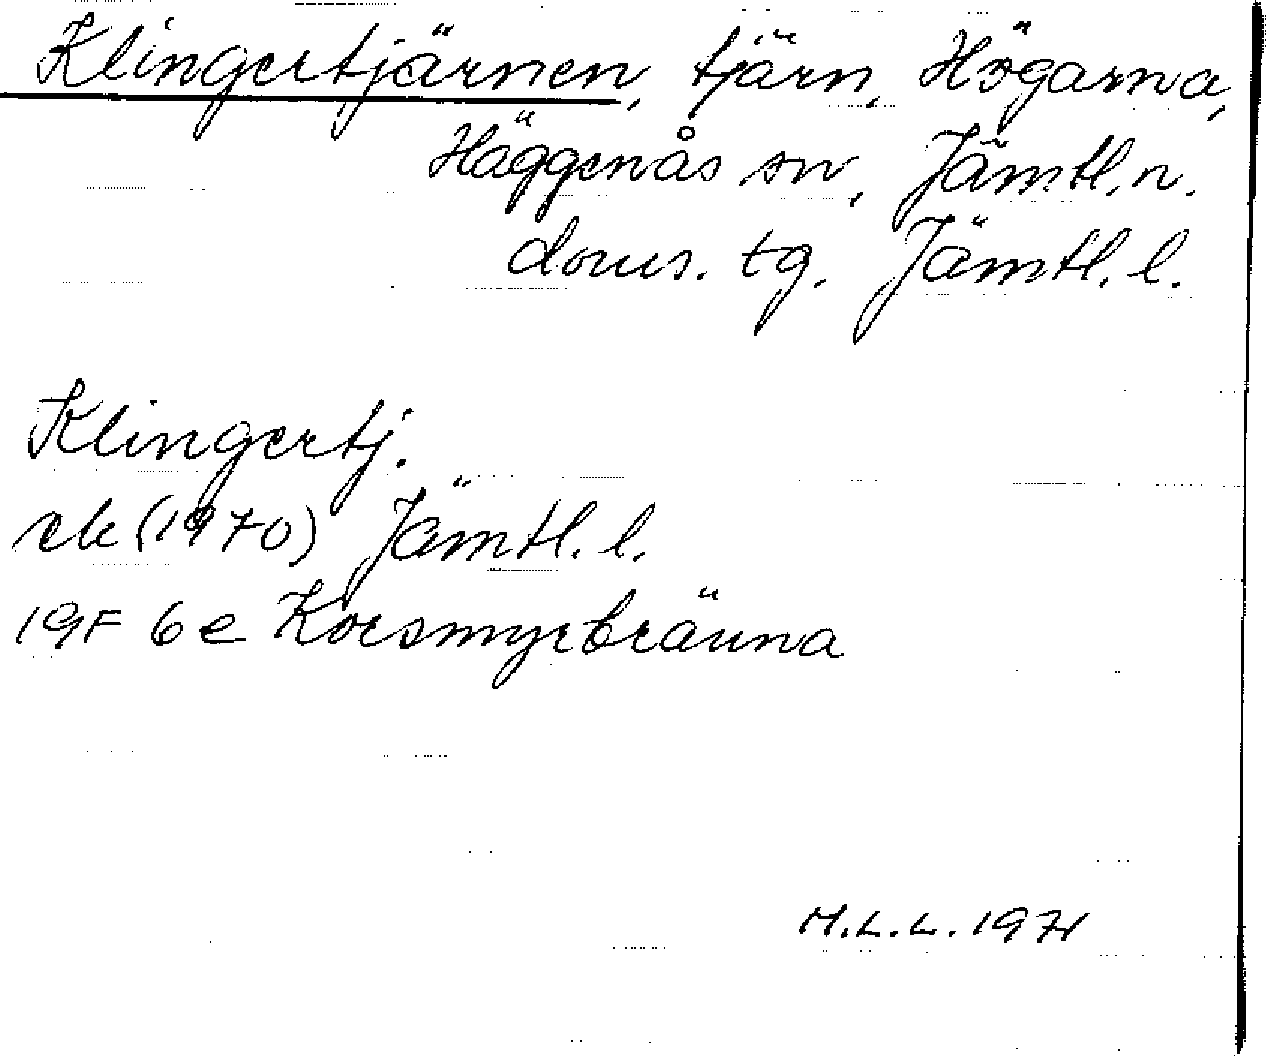 Klingertjärnen, tjärn, Högarna,
Häggenås sn, Jämtl. n.
doms. tg. Jämtl. l.
Klingertj.
ek (1970) Jämtl. l.
19F 6e Korsmyrbränna
M.L.L. 1971